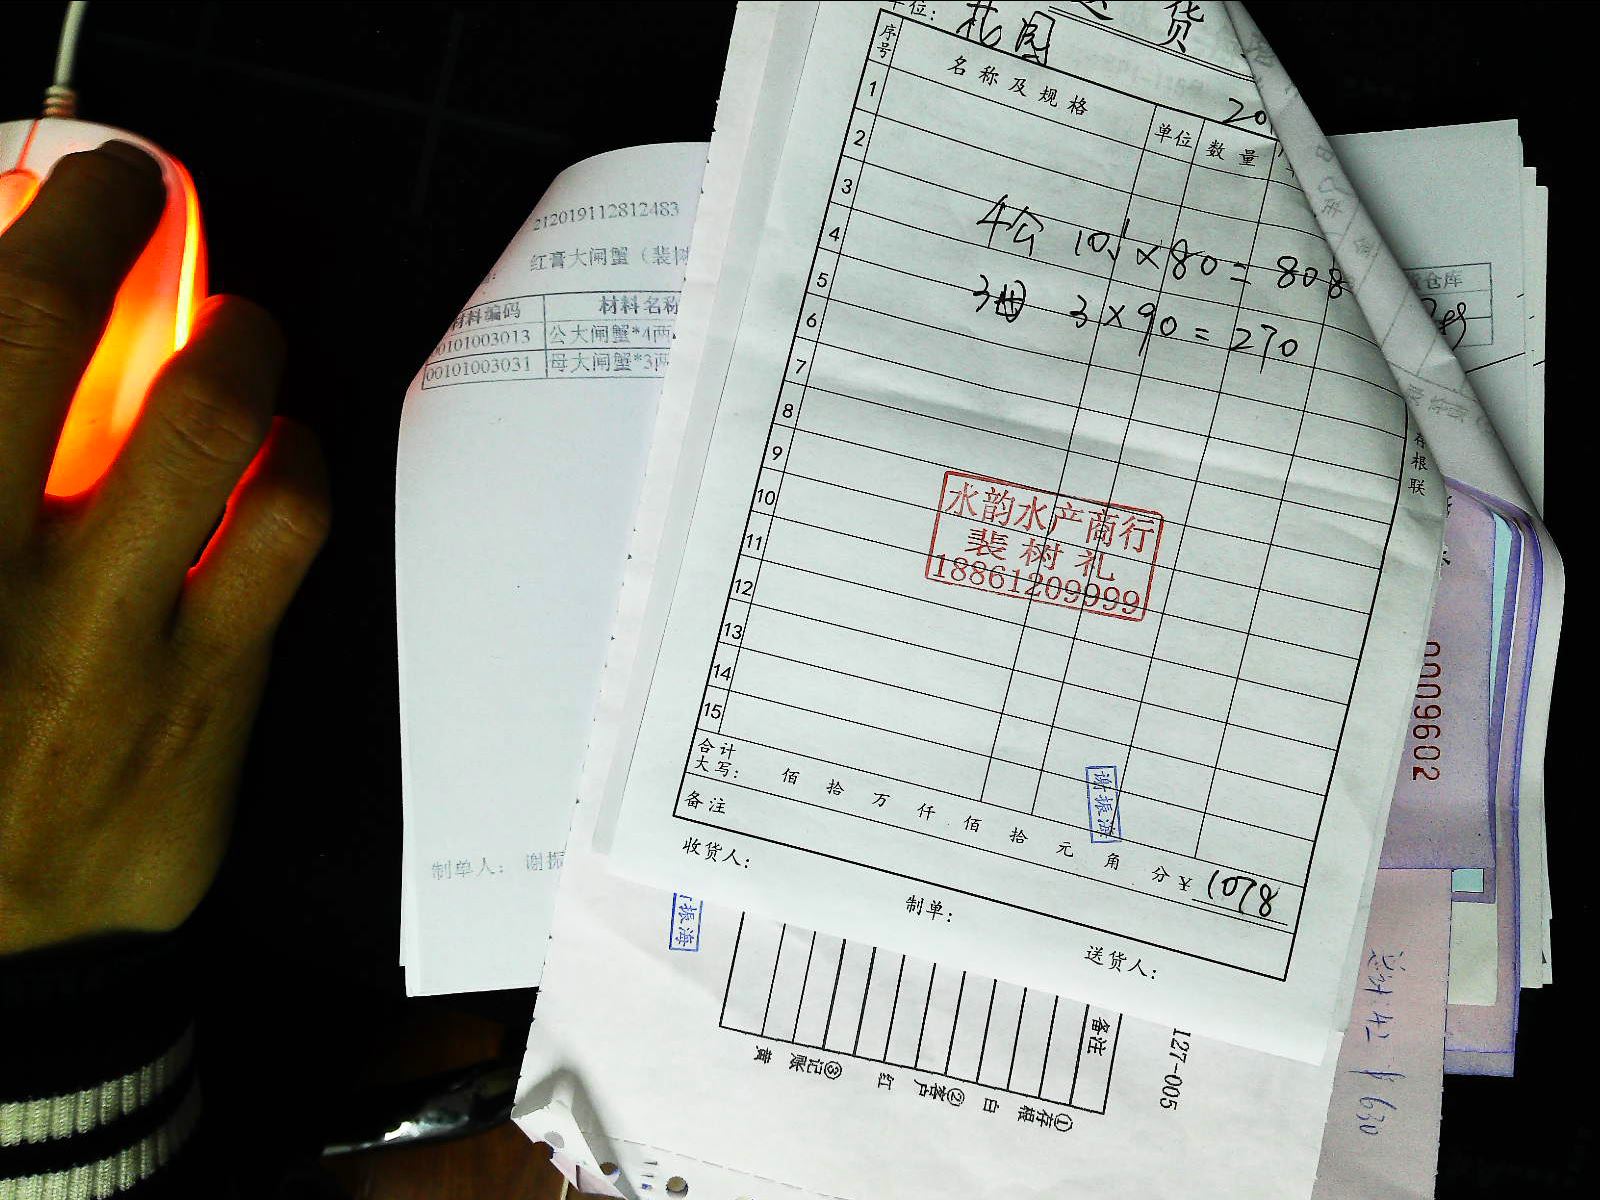 退货
单位: 花园
序号 名称及规格 单位 数量
1
2
3
4
5
6
7
8
9
10
11
12
13
14
15
4公 10.1×80=808
3母 3×90=270
水韵水产商行
裴树礼
18861209999
合计
大写: 佰 拾 万 仟 佰 拾 元 角 分 ¥ 1078
备注
收货人: 制单: 送货人:
谢振海
存根联
212019112812483
红膏大闸蟹（裴树
材料编码 材料名称
00101003013 公大闸蟹*4两
00101003031 母大闸蟹*3两
制单人: 谢振
振海
备注
①存根 白 ②客户 红 ③记账 黄
127-005
仓库
0009602
¥630